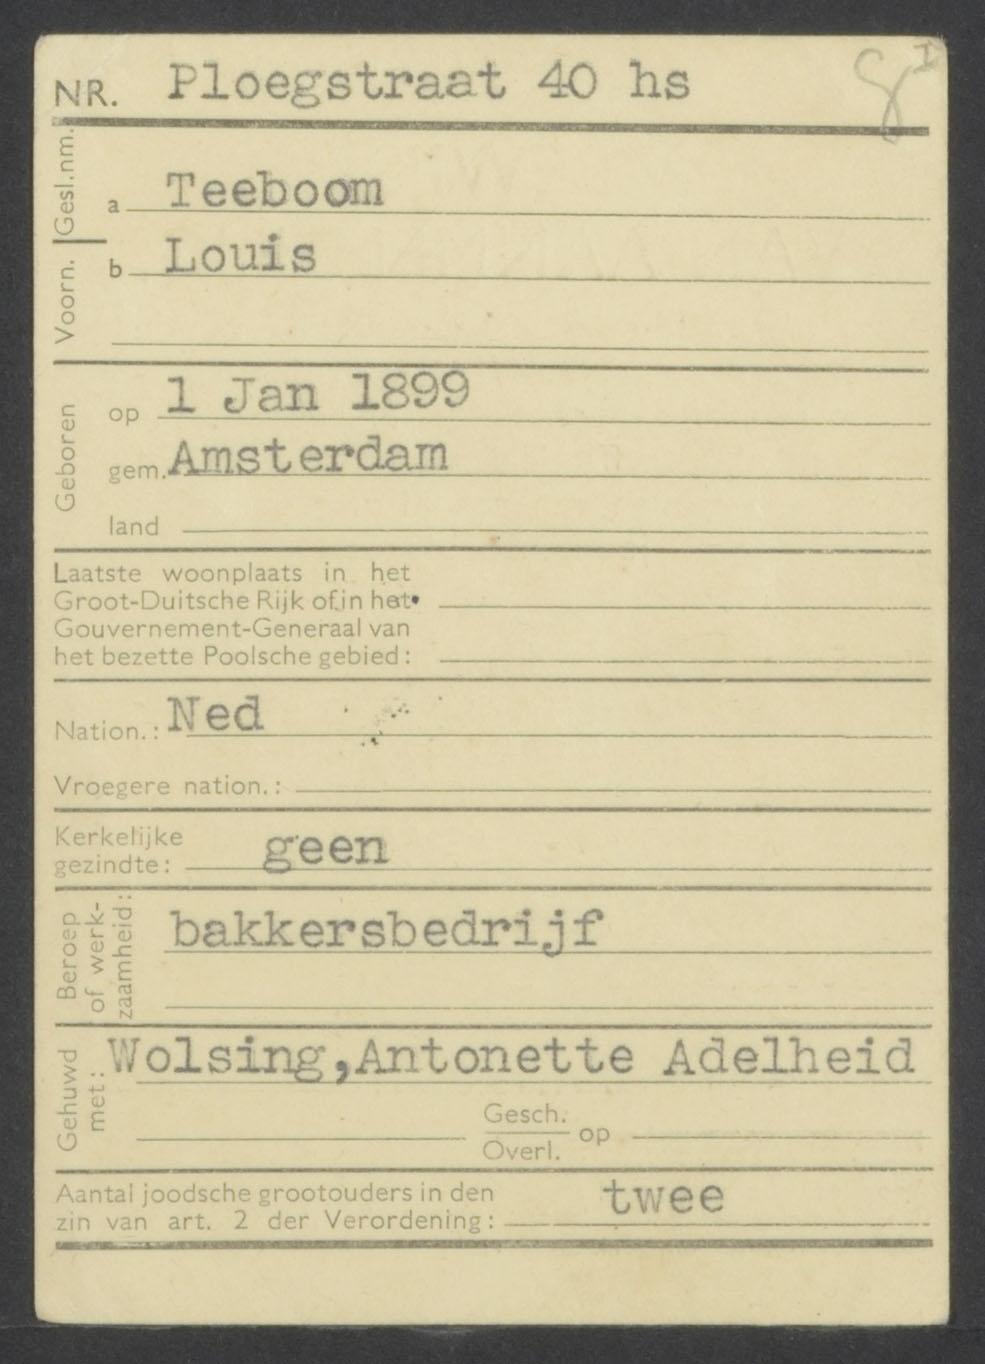 NR. Ploegstraat 40 hs
Gesl.nm. a Teeboom
Voorn. b Louis
Geboren op 1 Jan 1899
gem. Amsterdam
land
Laatste woonplaats in het
Groot-Duitsche Rijk of in het
Gouvernement-Generaal van
het bezette Poolsche gebied:
Nation.: Ned
Vroegere nation.:
Kerkelijke
gezindte: geen
Beroep
of werk-
zaamheid:
bakkersbedrijf
Gehuwd
met: Wolsing,Antonette Adelheid
Gesch.
Overl. op
Aantal joodsche grootouders in den
zin van art. 2 der Verordening: twee